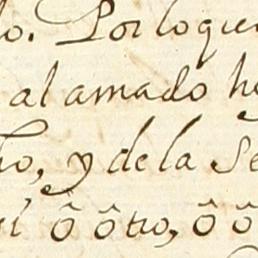 lo. Por loque
al amado he
ho, y de la Se
i ô ôtro, ô ô